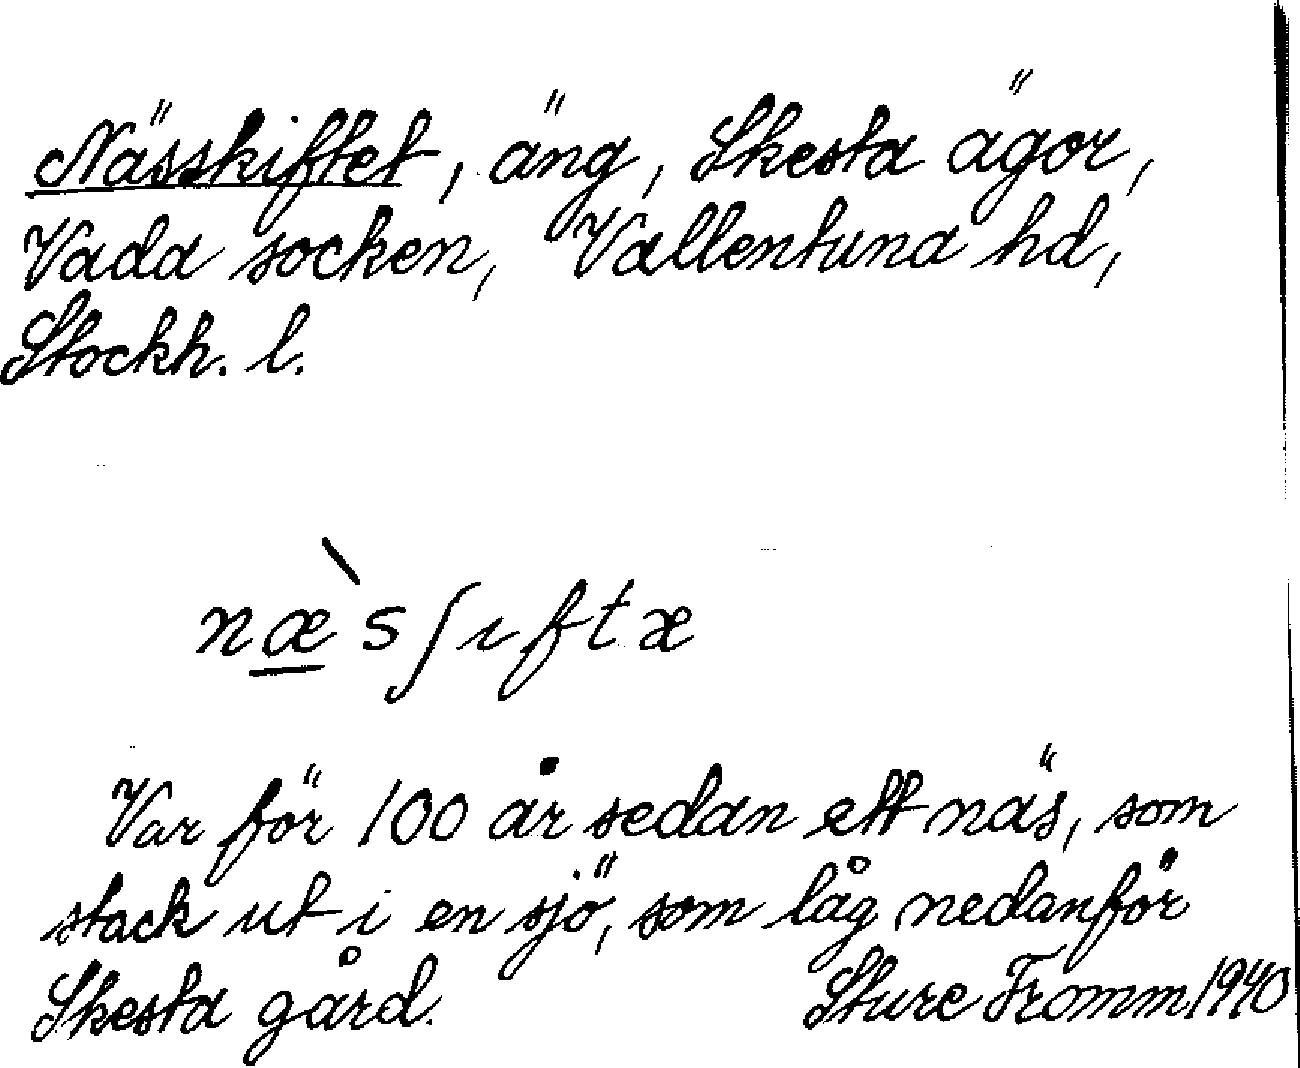 Nässkiftet, äng, Skesta ägor,
Vada socken, Vallentuna hd,
Stockh. l.
næ̱̀sʃıftæ
Var för 100 år sedan ett näs, som
stack ut i en sjö, som låg nedanför
Skesta gård. Sture Fromm 1940